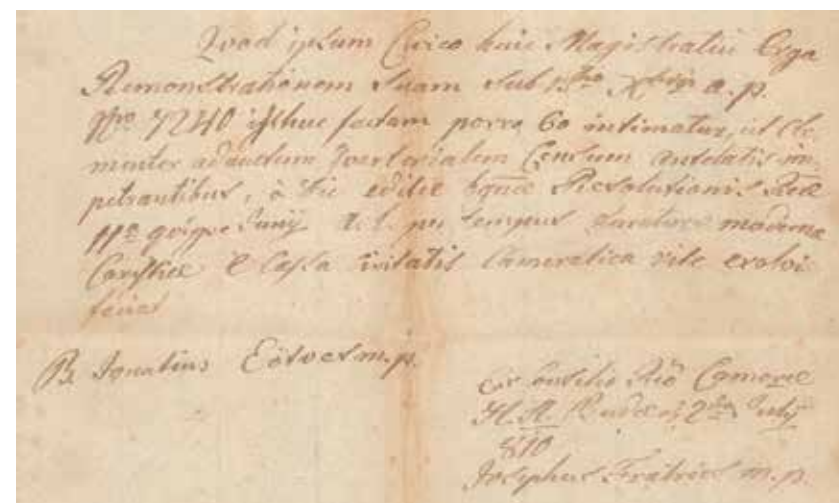 Quod ipsum Civico huic Magistratui Erga
Remonstrationem Suam Sub a.p.
Nro 7240 isthuc factam porro Eo intimatur, ut Cle
menter adauctum Quartirialem Censum antelatis im-
petrantibus, à die editae Resolutionis Regiae
Junij per tempus duraturae modernae
Caristiae e Cassa Civitatis Cameratica rite exolvi
faciat
B. Ignatius Eötvös m.p.
Ex Consilio Camerae
H.A. Budae July
810
Josephus m.p.